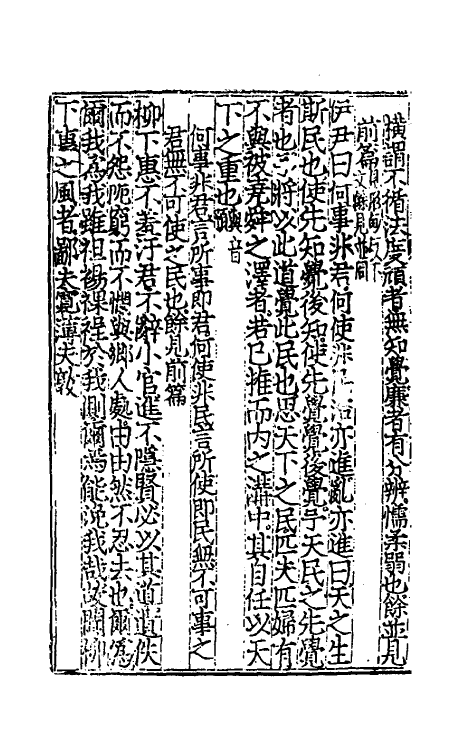 橫謂不循法度頑者無知覺廉者有分辨懦柔弱也餘並見
前篇
伊尹曰何事非君何使非治亦進亂亦進曰天之生
斯民也使先知覺後知使先覺覺後覺予天民之先覺
者也予將以此道覺此民也思天下之民匹夫匹婦有
不與被堯舜之澤者若己推而內之溝中其自任以天
下之重也 音
何事非君言所事即君何使非民言所使即民無不可事之
君無不可使之民也餘見前篇
柳下惠不羞汙君不辭小官進不隱賢必以其道遺佚
而不怨阨窮而不憫與鄉人處由由然不忍去也爾為
爾我為我雖袒裼裸裎於我側爾焉能浼我哉故聞柳
下惠之風者鄙夫寬薄夫敦